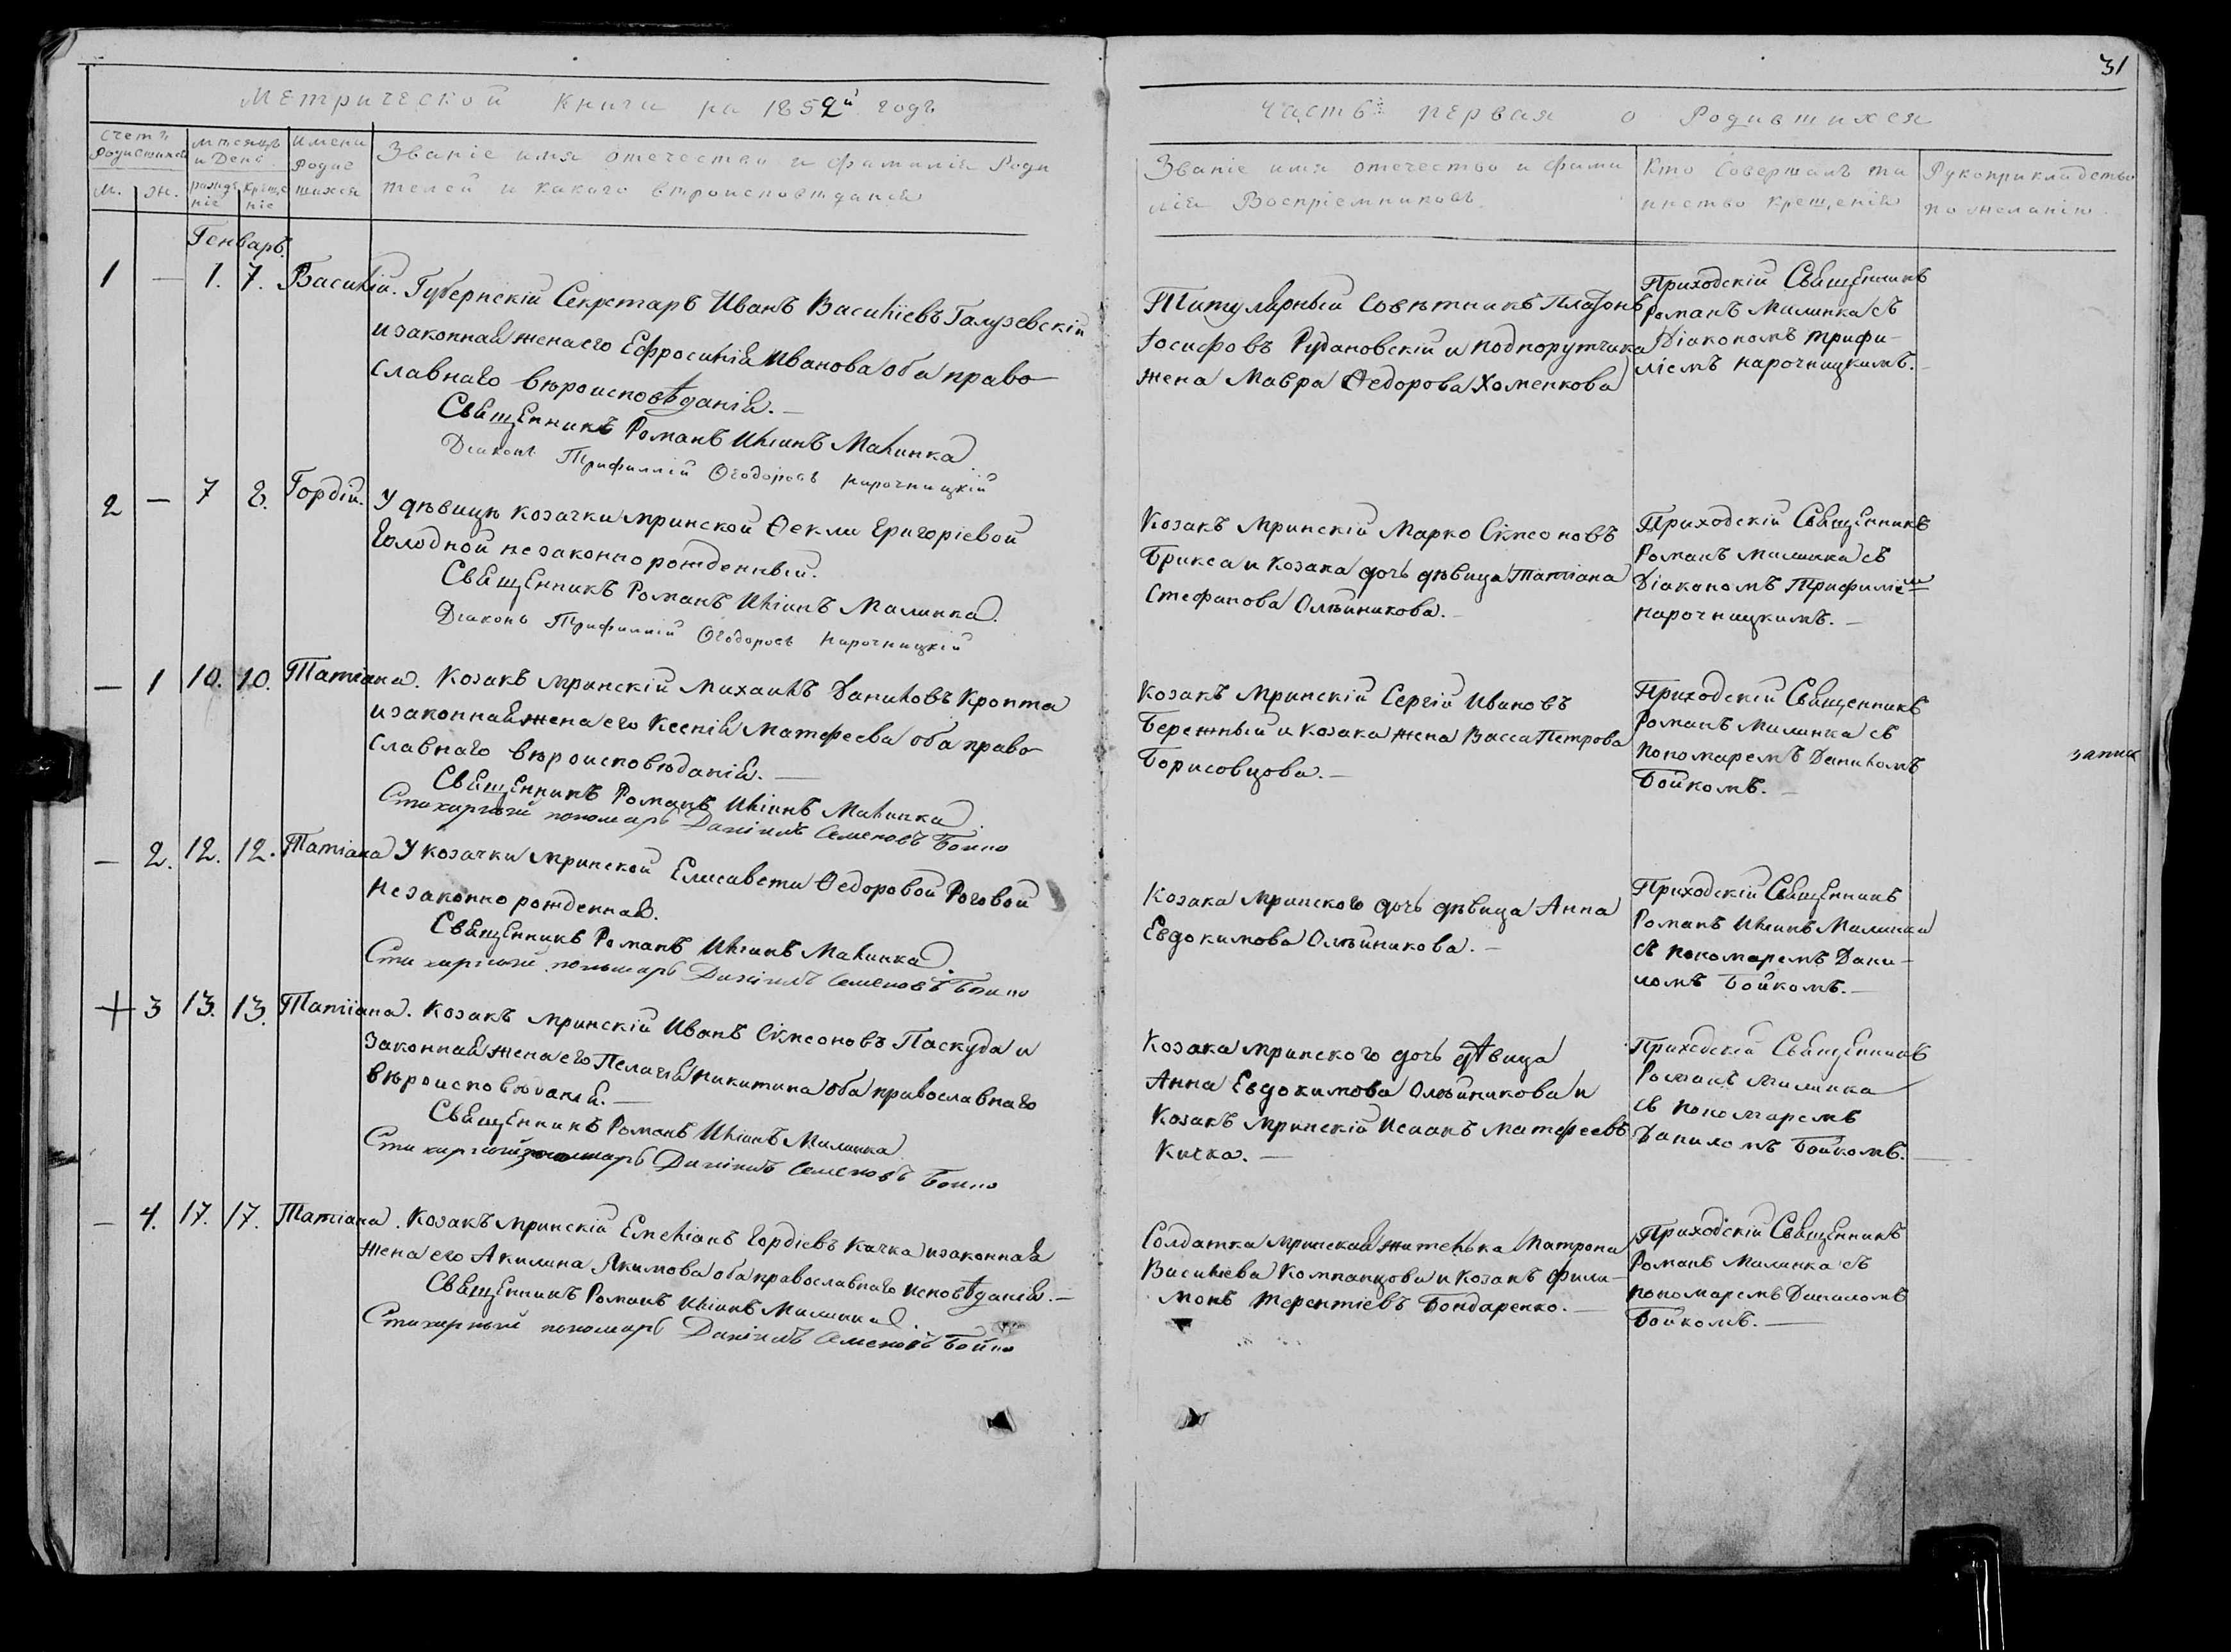 31
Метрической Книги на 1852й годъ
Часть первая о Родившихся
Счетъ Родившихся
Мѣсяцъ и День
Имена Родившихся
Званіе имя отечество и фамилія Роди
телей и какого вѣроисповѣданія
М.
Ж.
рожденіе
крещеніе
Званіе имя отечество и фами
лія Воспріемниковъ
Кто Совершалъ та
инство крещенія
Рукоприкладство
по желанію.
Генварь.
1 — 1. 7. Василій. Губернскій Секретарь Иванъ Василіевъ Галузевскій
и законная жена его Ефросинія Иванова оба право
славнаго вѣроисповѣданія. —
Священникъ Романъ Иліинъ Малинка
Діаконъ Трифиллій Ѳеодоровъ Нарочницкій
Титулярный Совѣтникъ Платонъ
Іосифовъ Рудановскій и подпорутчика
жена Мавра Ѳедорова Хоменкова
Приходскій Священникъ
Романъ Малинка съ
Діакономъ Трифи-
ліемъ Нарочницкимъ.
2 — 7 8. Гордій. У дѣвицы козачки мринской Ѳеклы Григоріевой
Голодной незаконнорожденный.
Священникъ Романъ Иліинъ Малинка.
Діаконъ Трифиллій Ѳеодоровъ Нарочницкій
Козакъ Мринскій Марко Сімеоновъ
Брикса и Козака дочь дѣвица Татіана
Стефанова Олѣйникова. —
Приходскій Священникъ
Романъ Малинка съ
Діакономъ Трифиліем
Нарочницкимъ. —
— 1 10. 10. Татіана. Козакъ мринскій Михаилъ Даниловъ Кропта
и законная жена его Ксенія Матфеева оба право
славнаго вѣроисповѣданія. —
Священникъ Романъ Иліинъ Малинка.
Стихарный пономарь Даніилъ Семеновъ Бойко
Козакъ Мринскій Сергій Ивановъ
Бережный и козака жена Васса Петрова
Борисовцова. —
Приходскій Священникъ
Романъ Малинка съ
пономаремъ Даниломъ
Бойкомъ. —
— 2. 12. 12. Татіана У козачки мринской Елисаветы Ѳедоровой Роговой
незаконнорожденная.
Священникъ Романъ Иліинъ Малинка.
Стихарный пономарь Даніилъ Семеновъ Бойко
Козака Мринского дочь дѣвица Анна
Евдокимова Олѣйникова. —
Приходскій Священникъ
Романъ Иліинъ Малинка
съ пономаремъ Дани-
ломъ Бойкомъ. —
+ 3 13. 13. Татіана. Козакъ мринскій Иванъ Сімеоновъ Паскуда и
законная жена его Пелагія Никитина оба православнаго
вѣроисповѣданія. —
Священникъ Романъ Иліинъ Малинка
Стихарный пономарь Даніилъ Семеновъ Бойко
Козака мринского дочь дѣвица
Анна Евдокимова Олѣйникова и
Козакъ мринскій Исаакъ Матфеевъ
Киска. —
Приходскій Священникъ
Романъ Малинка
съ пономаремъ
Даниломъ Бойкомъ.
— 4. 17. 17. Татіана. Козакъ мринскій Емеліанъ Гордіевъ Качка и законная
жена его Акилина Якимова оба православнаго исповѣданія. —
Священникъ Романъ Иліинъ Малинка.
Стихарный пономарь Даніилъ Семеновъ Бойко
Солдатка мринская жителька Матрона
Василіева Компанцова и козакъ Фили-
монъ Терентіевъ Бондаренко. —
Приходскій Священникъ
Романъ Малинка съ
пономаремъ Даниломъ
Бойкомъ. —